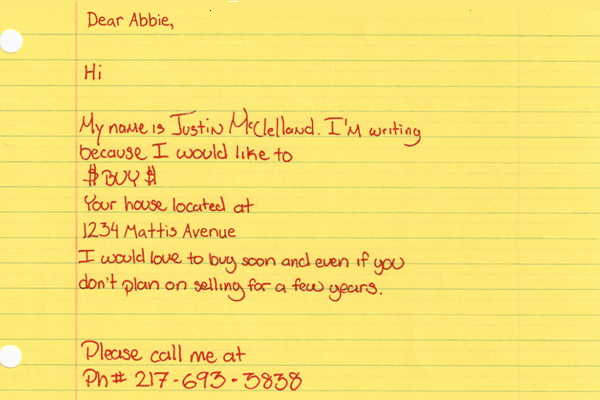 Dear Abbie,
Hi
My name is Justin McClelland. I'm writing
because I would like to
$BUY$
Your house located at
1234 Mattis Avenue
I would love to buy soon and even if you
don't plan on selling for a few years.
Please call me at
Ph# 217-693-3838